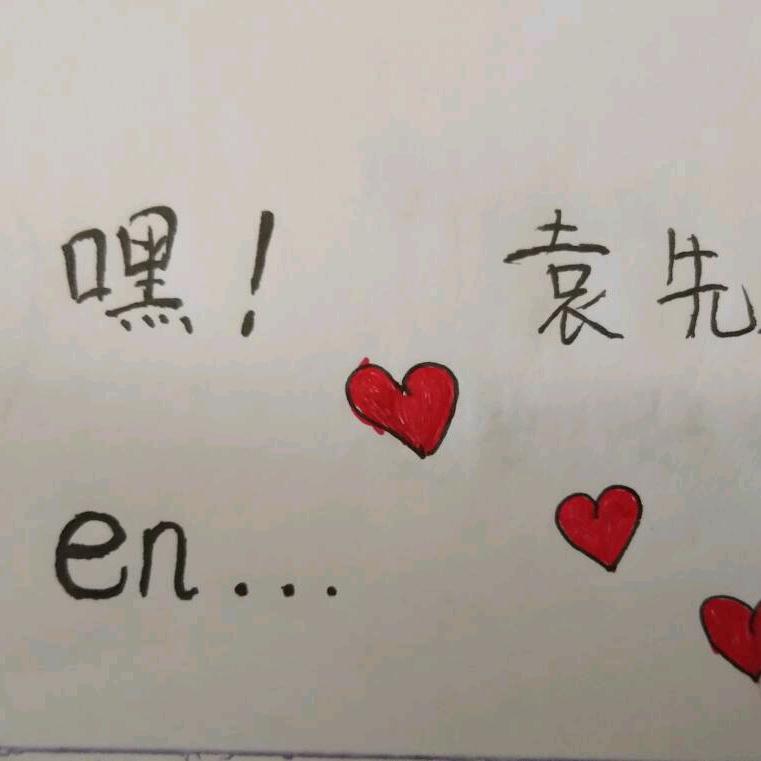 嘿! 袁先
en...